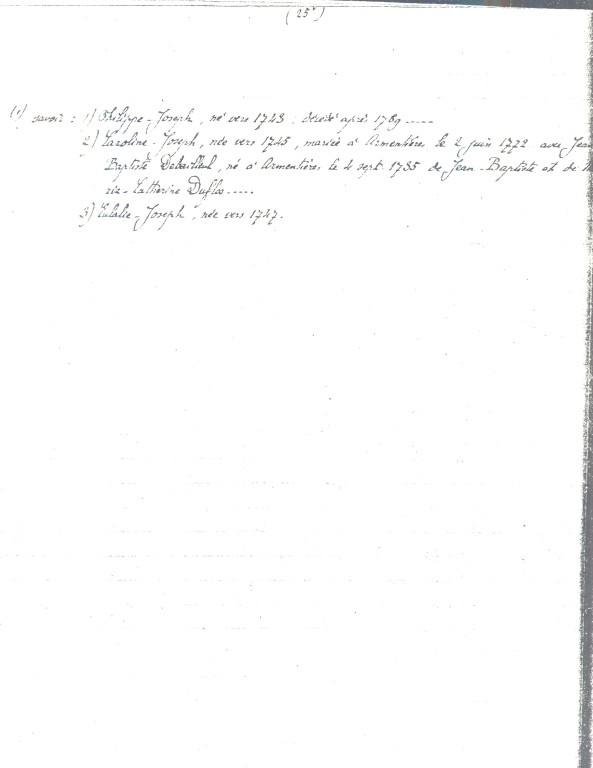 (25')
(1) savoir : 1) Philippe-Joseph, né vers 1743 ; décédé après 1789 .....
2) Caroline-Joseph, née vers 1745, mariée à Armentières le 2 juin 1772 avec Jean
Baptiste Debailleul, né à Armentières le 4 sept 1735 de Jean-Baptiste et de M
rie-Catherine Duflos .....
3) Eulalie-Joseph, née vers 1747.